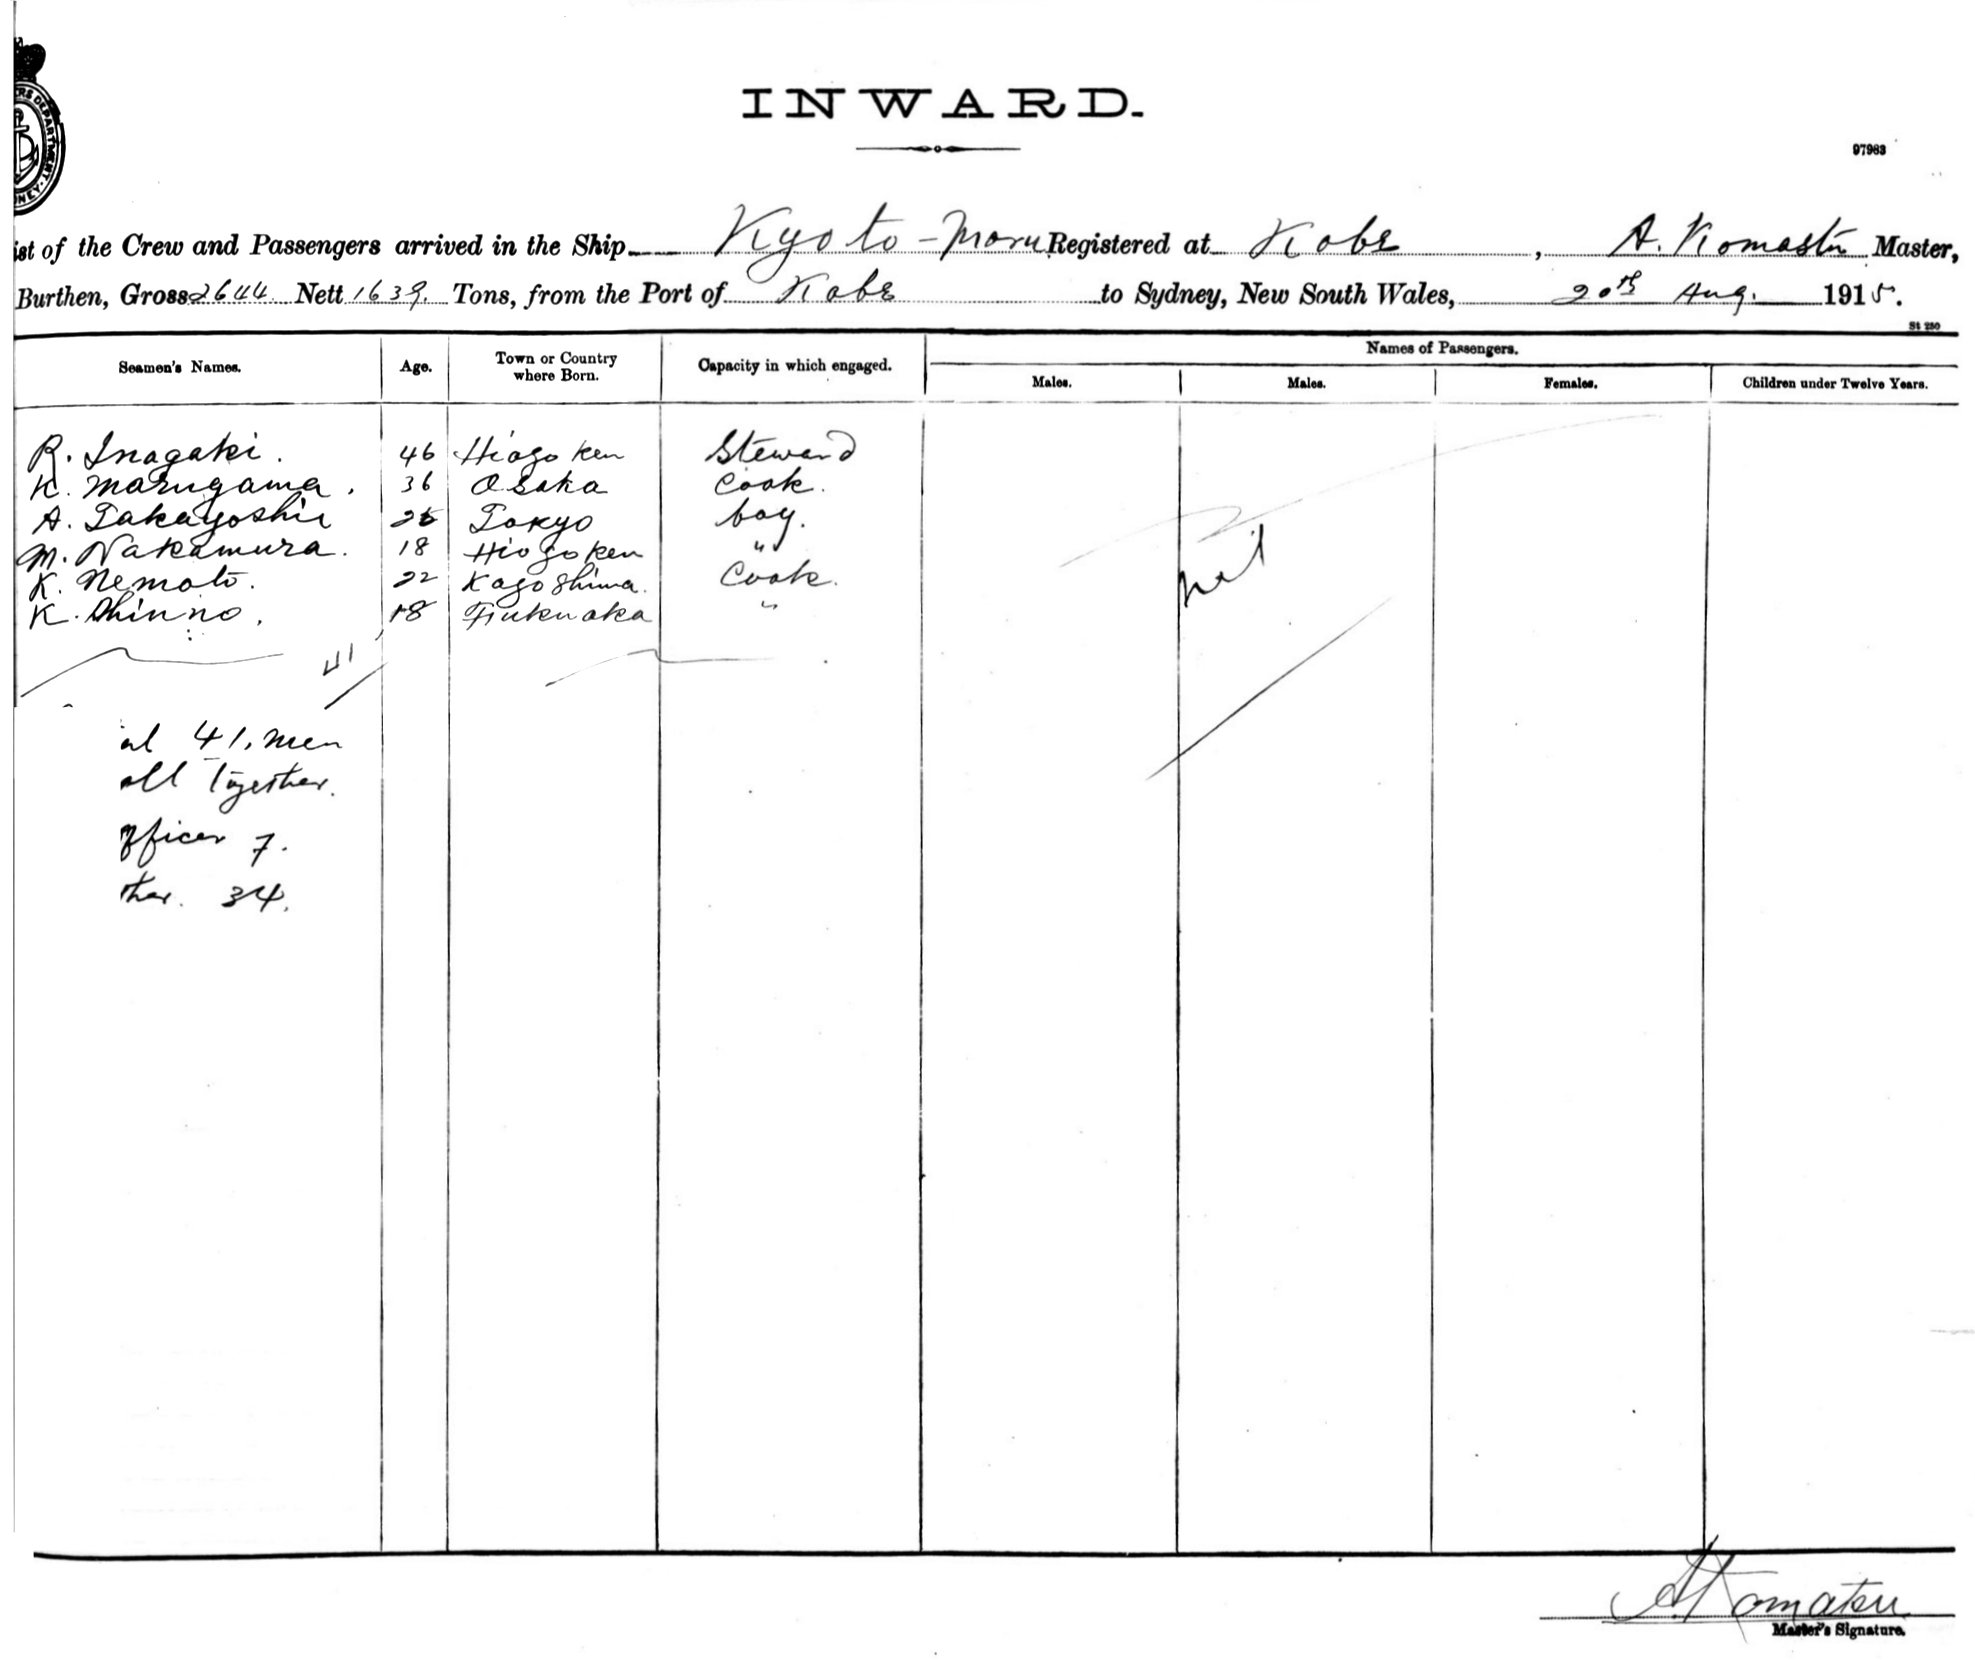 INWARD.
97963
ist of the Crew and Passengers arrived in the Ship Kyoto-Maru Registered at Kobe, A. Komastu Master,
Burthen, Gross 2644 Nett 1639. Tons, from the Port of Kobe to Sydney, New South Wales, 20th Aug. 1915.
St 250
Seamen's Names. Age. Town or Country where Born. Capacity in which engaged. Names of Passengers.
Males. Males. Females. Children under Twelve Years.
R. Inagaki. 46 Hiogo Ken Steward
K. Marugama. 36 Osaka Cook.
A. Takayoshi Tokyo boy.
M. Nakamura. 18 Hiogo Ken "
K. Nemoto. 22 Kagoshima. Cook.
K. Shinno. 18 Fukuoka "
nil
41
al 41. men
all Together.
fficer 7.
ther. 34.
A Komatsu
Master's Signature.